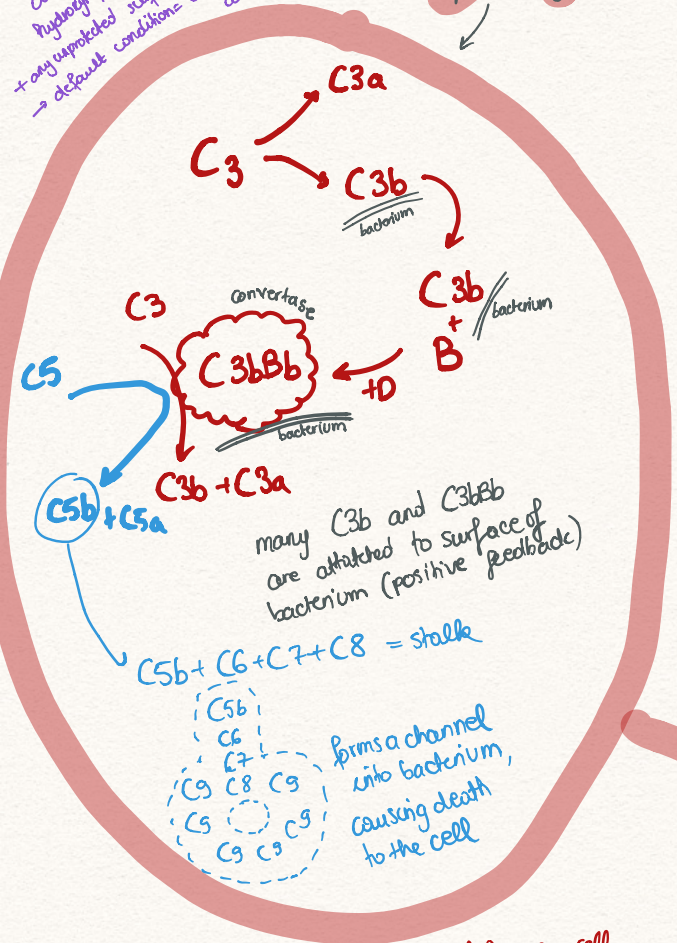 hydroxy
+ any unprotected
→ default condition=
C3a
C3
C3b
bacterium
C3b
bacterium
+
B
+D
convertase
C3bBb
bacterium
C3
C5
C3b + C3a
C5b + C5a
many C3b and C3bBb
are attatched to surface of
bacterium (positive feedback)
C5b + C6 + C7 + C8 = stalk
C5b
C6
C7
C9 C8 C9
C9 C9
C9 C9
forms a channel
into bacterium,
causing death
to the cell
cell